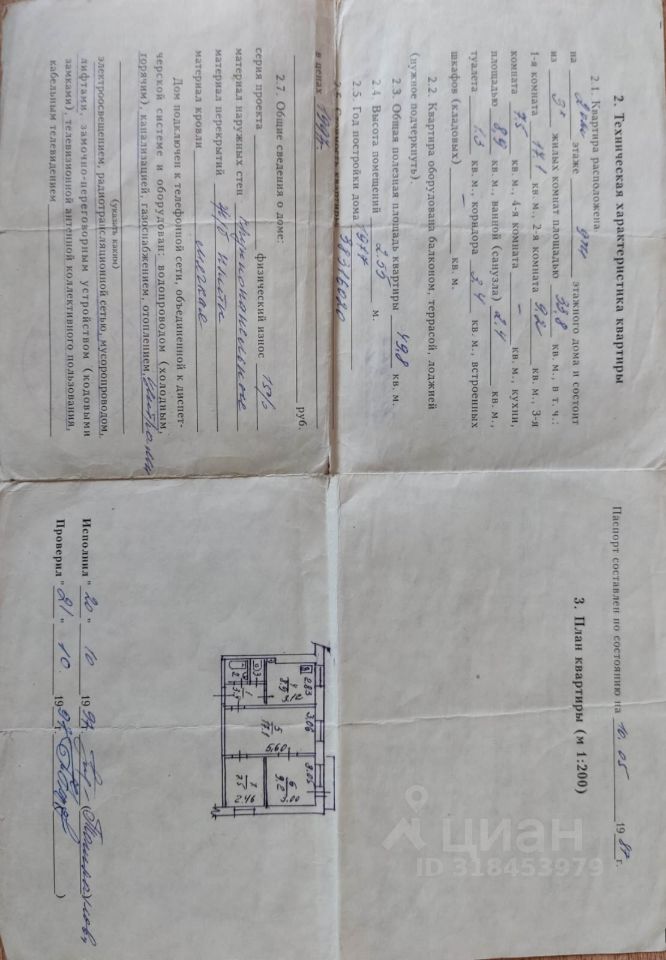 2. Техническая характеристика квартиры
2.1. Квартира расположена:
на 2ом этаже 9ти этажного дома и состоит
из 3х жилых комнат площадью 33,8 кв. м., в т. ч.:
1-я комната 17,1 кв. м., 2-я комната 9,2 кв. м., 3-я
комната 7,5 кв. м., 4-я комната – кв. м., кухни,
площадью 8,9 кв. м., ванной (санузла) 2,4 кв. м.,
туалета 1,3 кв. м., коридора 3,4 кв. м., встроенных
шкафов (кладовых) – кв. м.
2.2. Квартира оборудована балконом, террасой, лоджией
(нужное подчеркнуть).
2.3. Общая полезная площадь квартиры 49,8 кв. м.
2.4. Высота помещений 2,55 м.
2.5. Год постройки дома 1977
в ценах 1997 руб.
2.7. Общие сведения о доме:
серия проекта физический износ 15%
материал наружных стен крупнопанельное
материал перекрытий ж/б плиты
материал кровли мягкая
Дом подключен к телефонной сети, объединенной к диспет-
черской системе и оборудован: водопроводом (холодным,
горячим), канализацией, газоснабжением, отоплением,
(указать каким)
электроосвещением, радиотрансляционной сетью, мусоропроводом,
лифтами, замочно-переговорным устройством (кодовыми
замками), телевизионной антенной коллективного пользования,
кабельным телевидением
Паспорт составлен по состоянию на 10.05 1987 г.
3. План квартиры (м 1:200)
2,83
4
8,9
3
2
1
3,4
3,06
5
17,1
5,60
3,05
6
9,2
3,00
7
7,5
2,46
Исполнил "20" 10 1997
Проверил "21" 10 1997 )
циан
ID 318453979